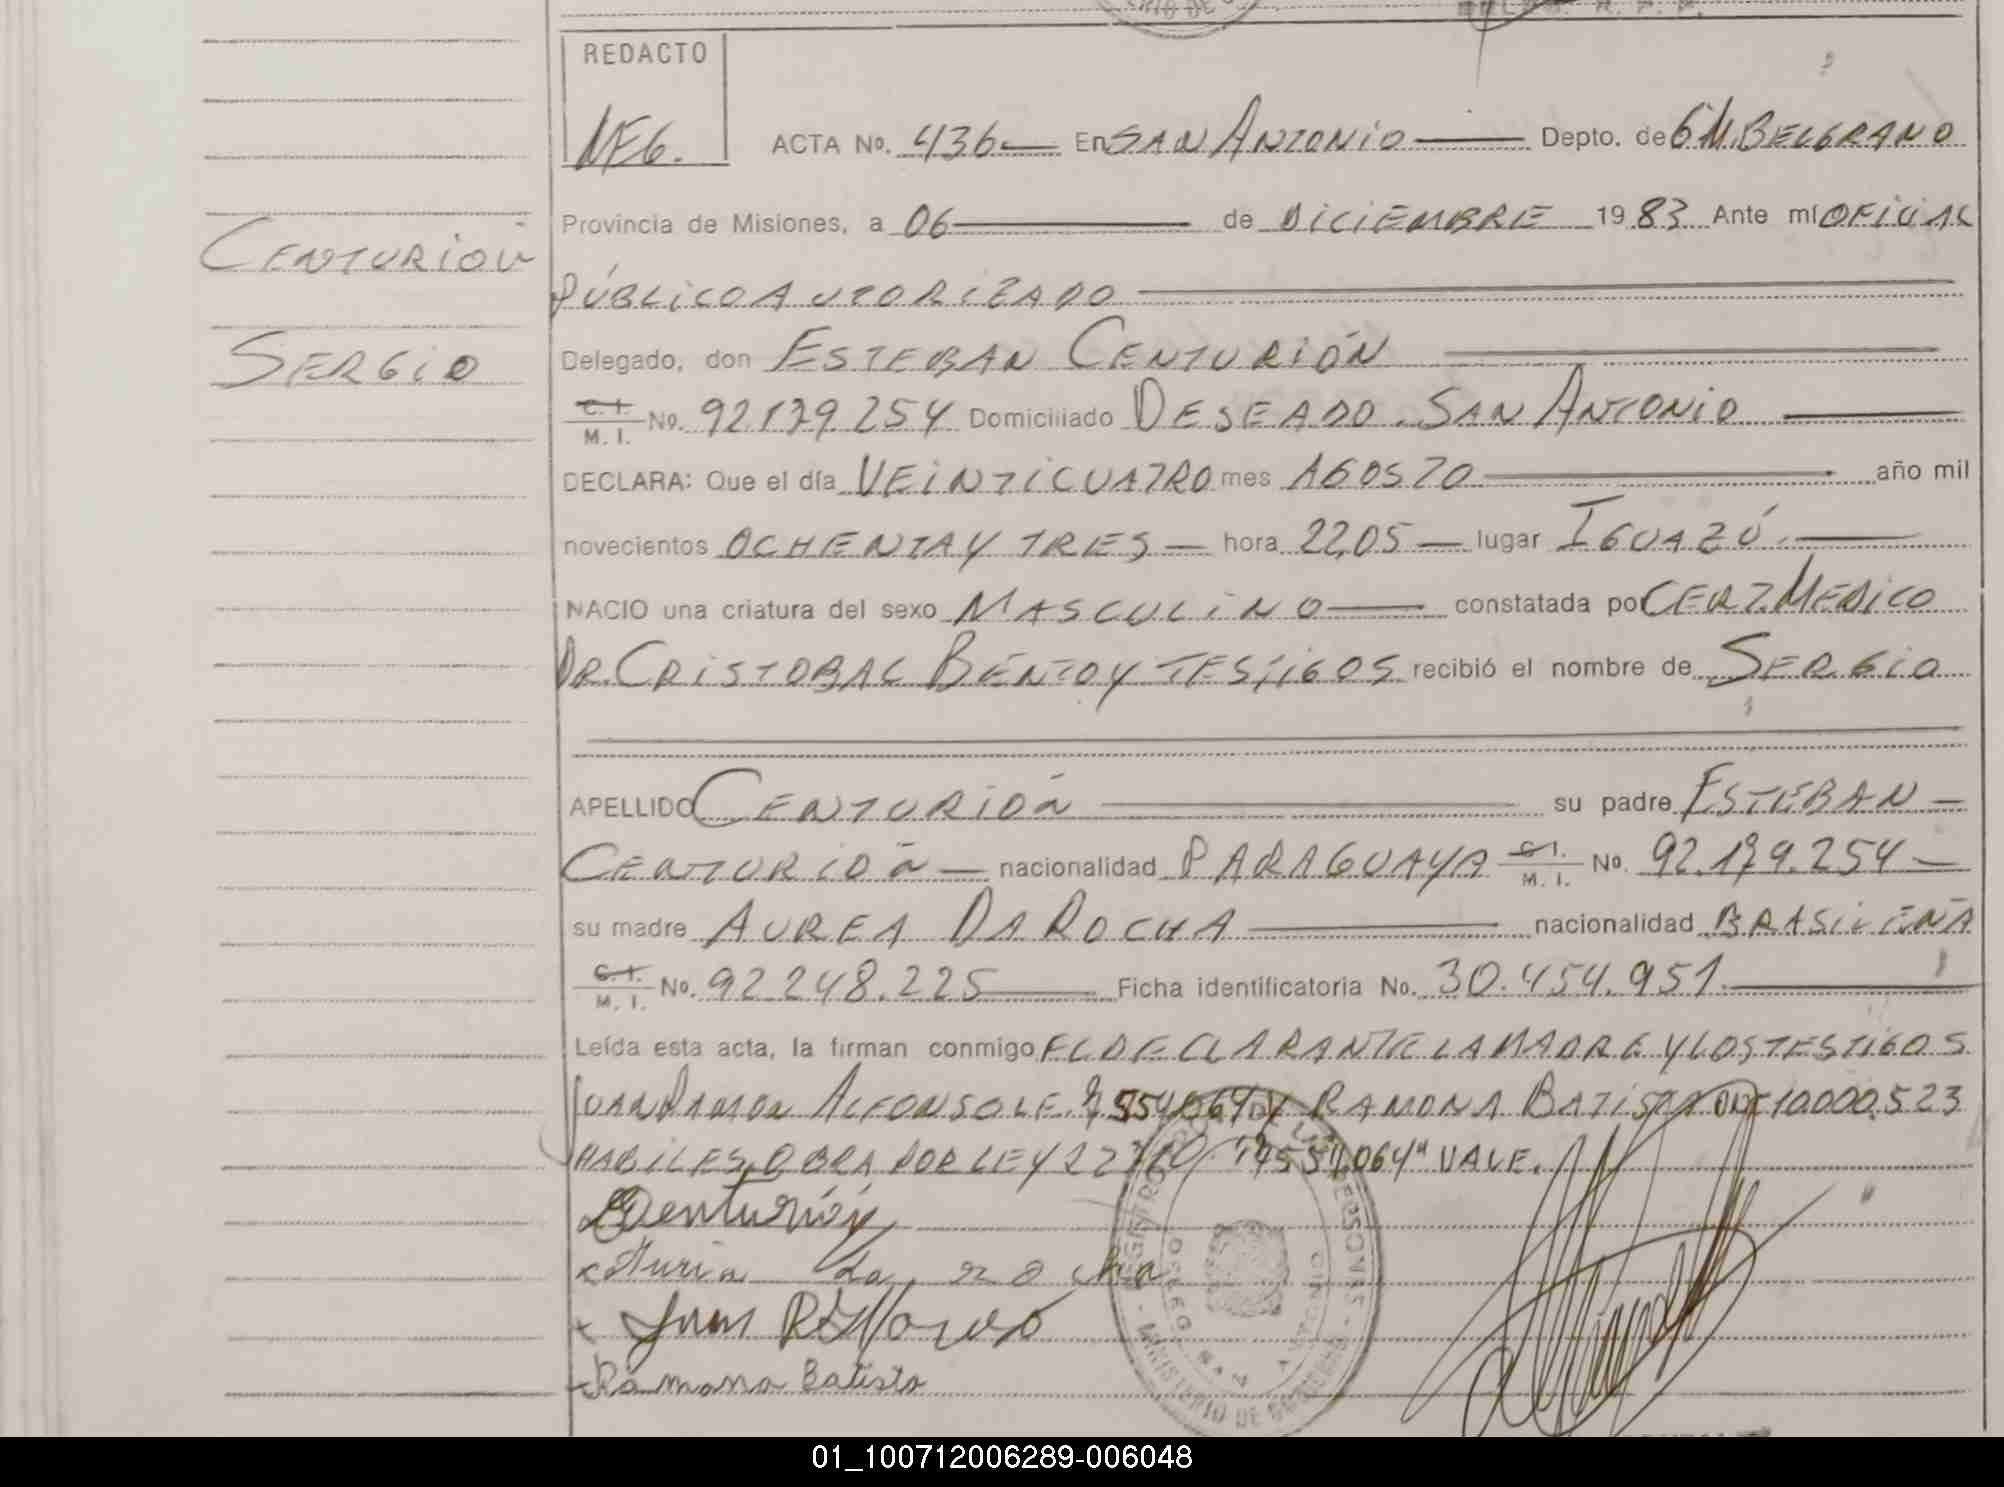 REDACTO
ACTA No. 436 En SAN ANTONIO Depto. de G.M. BELGRANO
Provincia de Misiones, a 06 de DICIEMBRE 1983 Ante mí OFICIAL
PÚBLICO AUTORIZADO
CENTURIÓN
Delegado, don ESTEBAN CENTURIÓN
SERGIO
C. I. / M. I. No. 92.179.254 Domiciliado DESEADO. SAN ANTONIO
DECLARA: Que el día VEINTICUATRO mes AGOSTO año mil
novecientos OCHENTA Y TRES hora 22,05 lugar IGUAZÚ.
NACIO una criatura del sexo MASCULINO constatada por CERT. MEDICO
DR. CRISTOBAL BENTO Y TESTIGOS recibió el nombre de SERGIO
APELLIDO CENTURIÓN su padre ESTEBAN
CENTURIÓN nacionalidad PARAGUAYA C. I. / M. I. No. 92.179.254
su madre AUREA DA ROCHA nacionalidad BRASILEÑA
C. I. / M. I. No. 92.248.225 Ficha identificatoria No. 30.454.951.
Leída esta acta, la firman conmigo EL DECLARANTE LA MADRE Y LOS TESTIGOS
JUAN RAMON ALFONSO L.E. Y RAMONA BATISTA DNI 10.000.523
HABILES, OBRA POR LEY VALE.
Centurión
da rocha
Juan R
Ramona Batista
MINISTERIO DE GOBIERNO
01_100712006289-006048